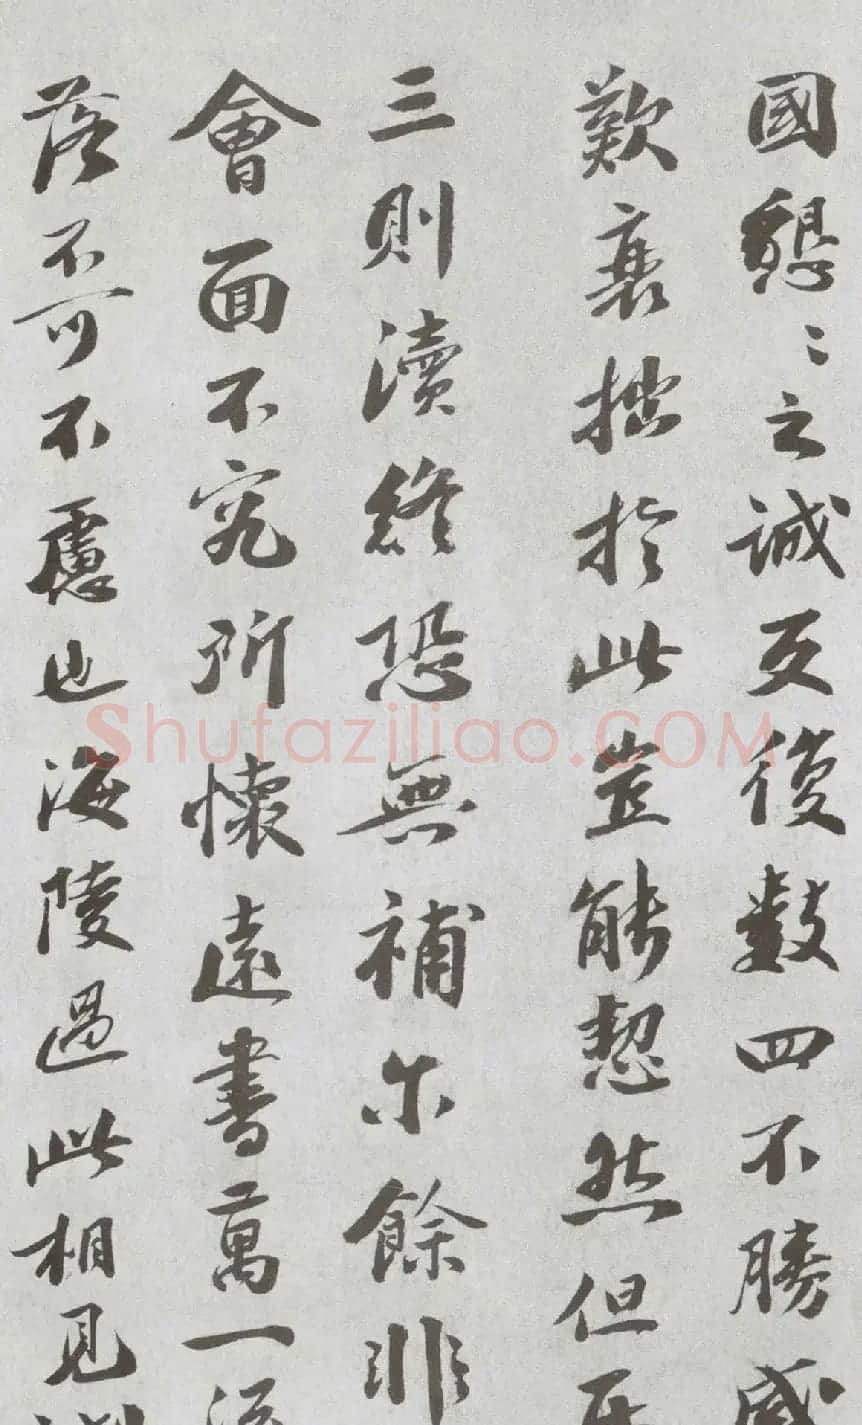 國懇〻之誠反復數四不勝感
歎衰拙於此豈能恝然但再
三則瀆終恐無補尒餘非
會面不究所懷遠書萬一流
落不可不慮也海陵過此相見
Shufaziliao.COM